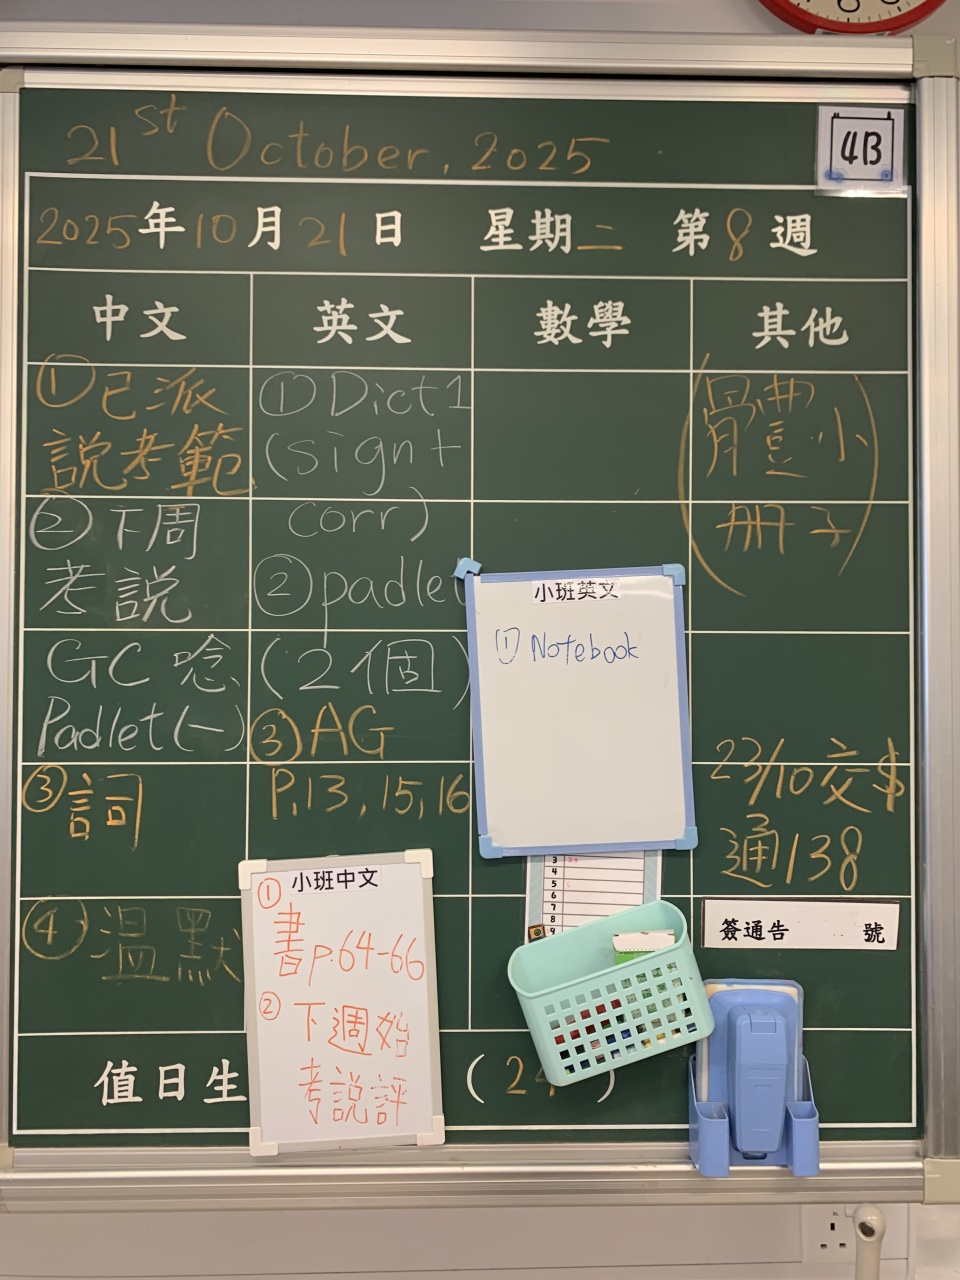 21st October, 2025
4B
2025年10月21日 星期二 第8週
中文 英文 數學 其他
①已派
說考範
②下周
考說
GC 唸
Padlet(一)
③詞
④溫默
①Dict1
(sign+
corr)
②padlet
(2個)
③AG
P.13,15,16
(體小
冊子)
23/10交$
通138
簽通告 號
小班英文
① Notebook
3
4
5
6
7
8
9
小班中文
①書p.64-66
②下週始
考說評
值日生 (24)